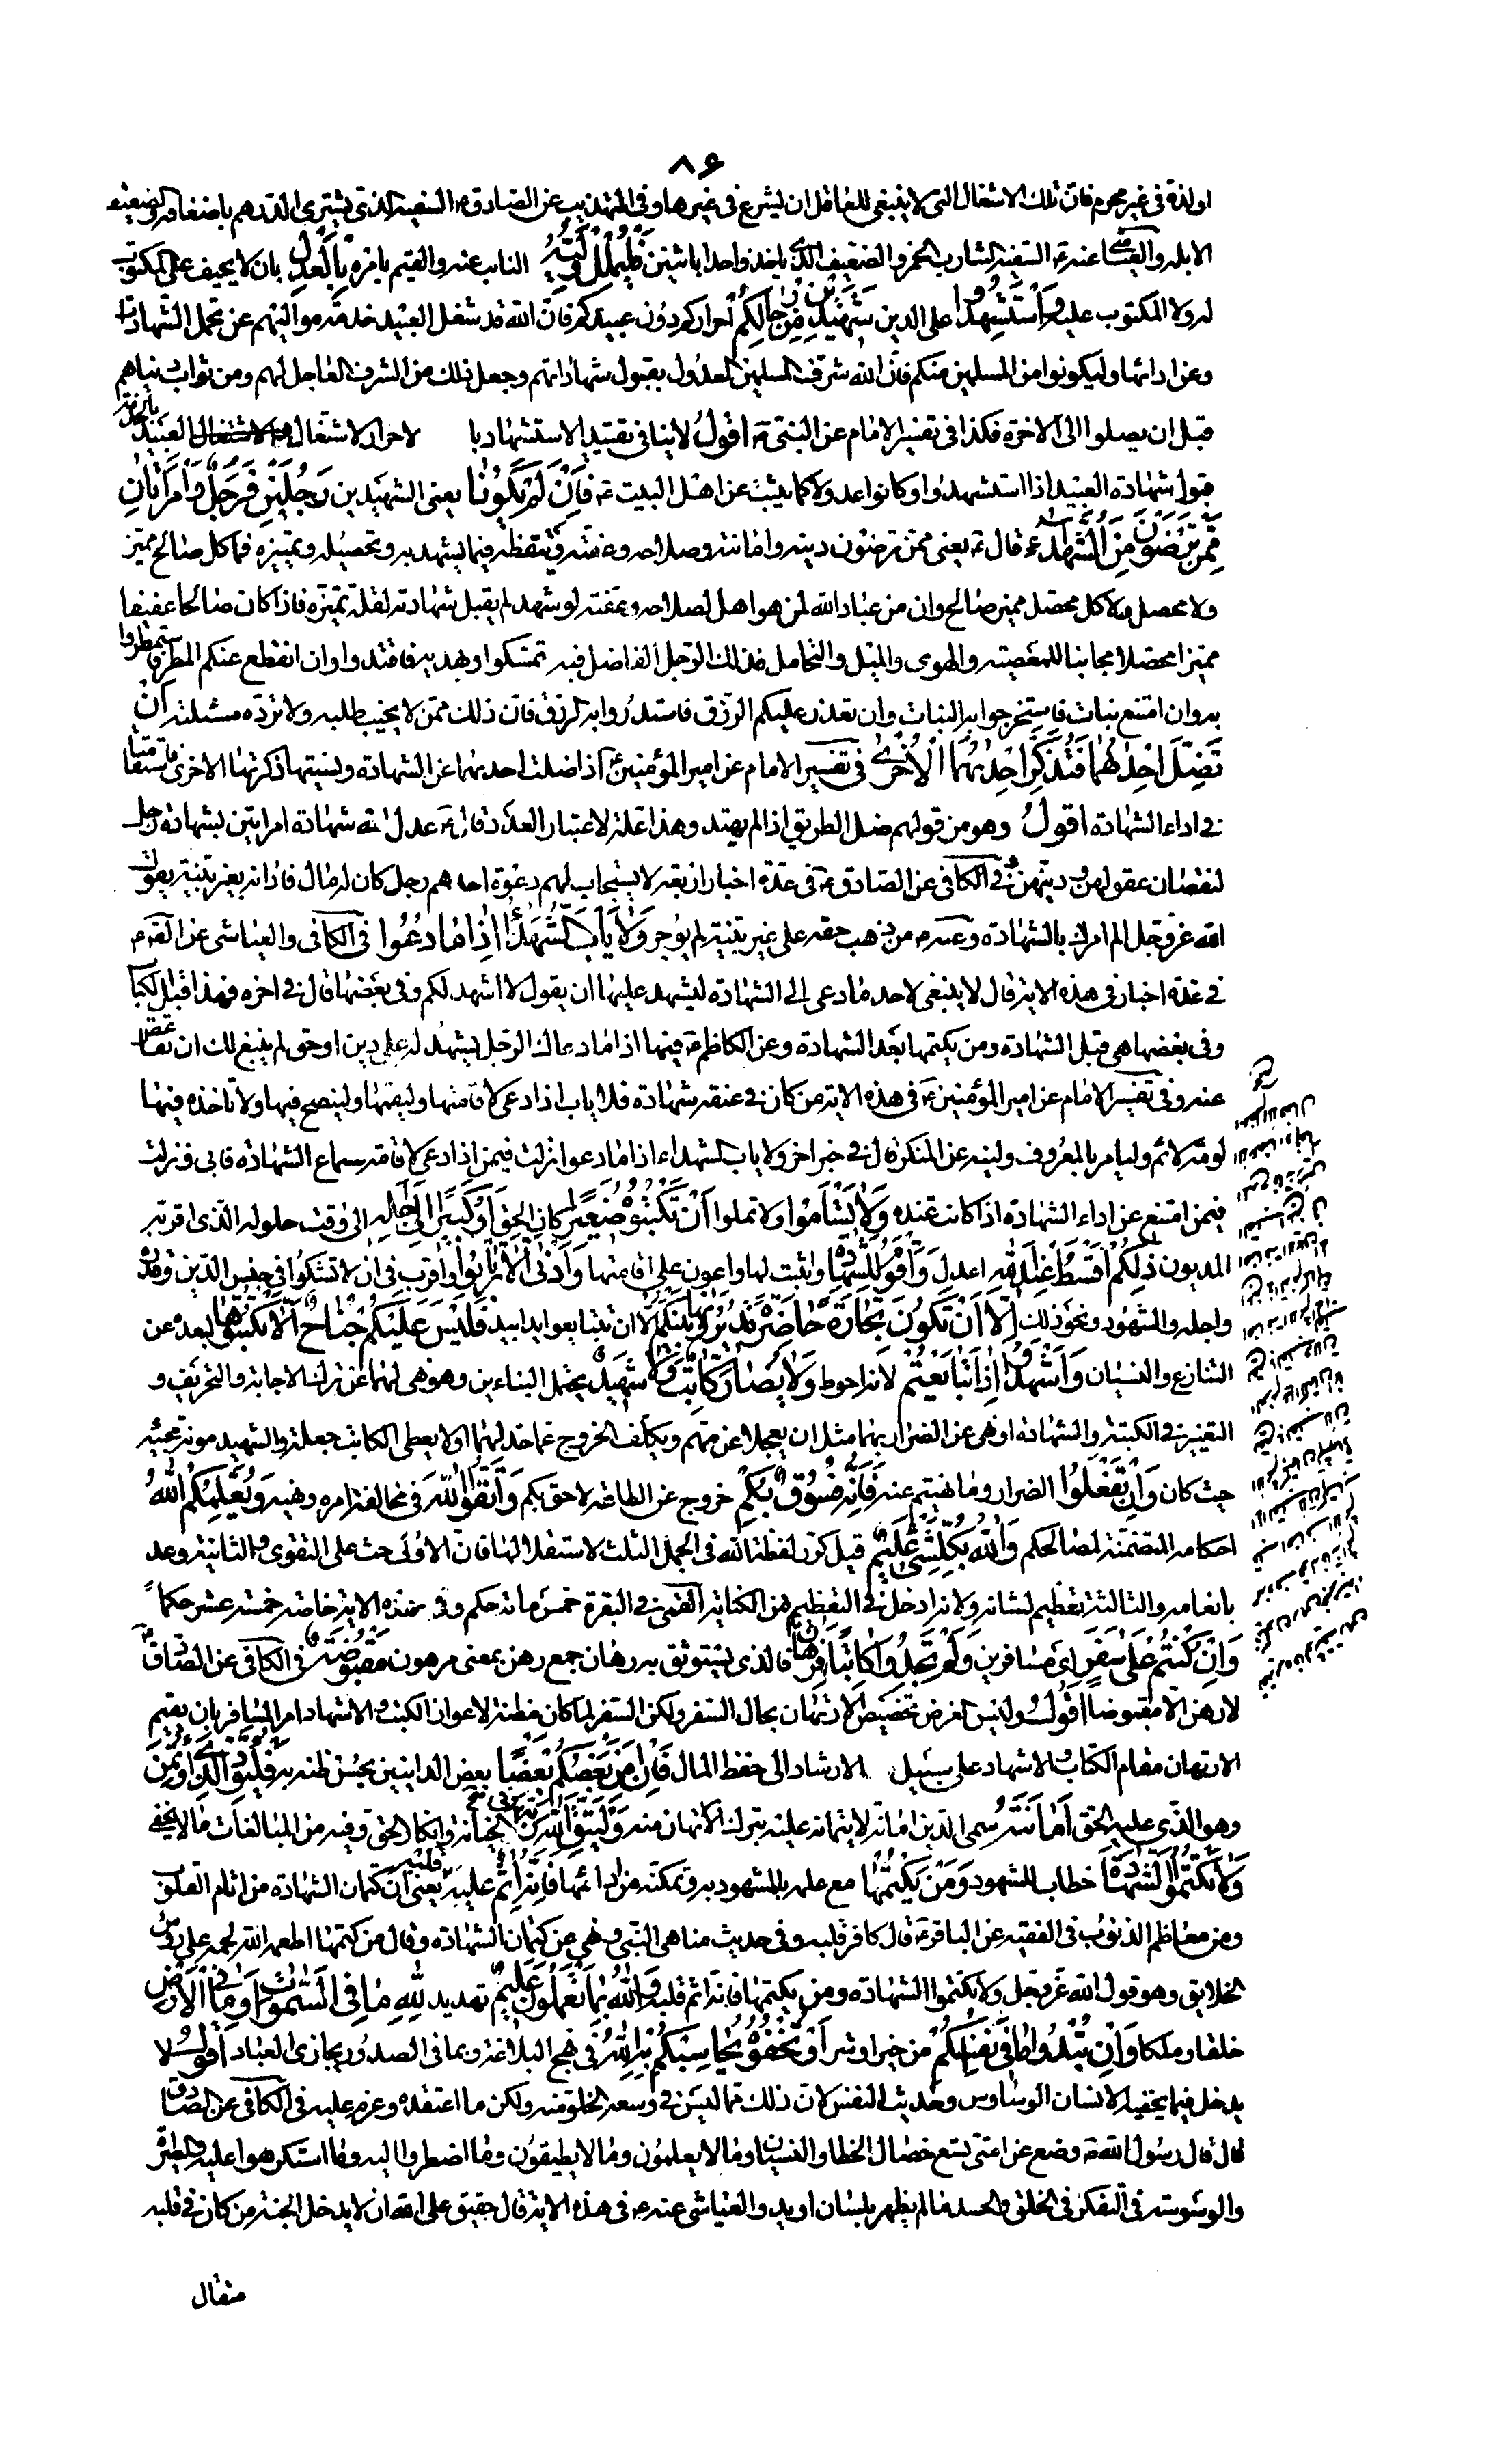 ٨۶
او لذة فى غير محرم فان تلك الاشغال التى لا ينبغى للعاقل ان يشرع فى غيرها وفى التهذيب عن الصادق ع السفيه الذى يشترى الدرهم باضعافه والضعيف
الابله والعياشى عنه ع السفيه الشارب الخمر والضعيف الذى ياخذ واحدا باثنين فَلْيُمْلِلْ وَلِيُّهُ النائب عنه والقيم بامره بِالْعَدْلِ بان لا يحيف على المكتوب
له ولا المكتوب عليه وَاسْتَشْهِدُوا على الدين شَهِيدَيْنِ مِنْ رِجَالِكُمْ احراركم دون عبيدكم فان الله قد شغل العبيد خدمة مواليهم عن تحمل الشهادات
وعن ادائها وليكونوا من المسلمين منكم فان الله شرف المسلمين العدول بقبول شهاداتهم وجعل ذلك من الشرف العاجل لهم ومن ثواب دنياهم
قبل ان يصلوا الى الاخرة فكذا فى تفسير الامام عن النبى ص اقولُ لا ينافى تقييد الاستشهاد با لاحرار لاشتغال العبيد بالخدمة
قبول شهادة العبيد اذا استشهدوا وكانوا عدولا كما يثبت عن اهل البيت ع فَاِنْ لَمْ يَكُونَا يعنى الشهيدين رَجُلَيْنِ فَرَجُلٌ وَامْرَاَتَانِ
مِمَّنْ تَرْضَوْنَ مِنَ الشُّهَدَاءِ قال ع يعنى ممن ترضون دينه وامانته وصلاحه وعفته وتيقظه فيما يشهد به وتحصيله وتمييزه فما كل صالح مميز
ولا محصل ولا كل محصل مميز صالح وان من عباد الله لمن هو اهل لصلاحه وعفته لو شهد لم يقبل شهادته لقلة تميزه فاذا كان صالحا عفيفا
مميزا محصلا مجانبا للمعصيته والهوى والميل والتحامل فذلك الرجل الفاضل فبه تمسكوا وبهديه فاقتدوا وان انقطع عنكم المطر فاستمطروا
به وان امتنع نبات فاستخرجوا به النبات وان تعذر عليكم الرزق فاستدروا به الرزق فان ذلك ممن لا يخيب طلبه ولا ترده مسئلته اَنْ
تَضِلَّ اِحْدٰيهُمَا فَتُذَكِّرَ اِحْدٰيهُمَا الْاُخْرٰى فى تفسير الامام عن امير المؤمنين ع اذا ضلت احديهما عن الشهادة ونسيتها ذكرتها الاخرى فاستقامتا
فى اداء الشهادة اقولُ وهو من قولهم ضل الطريق اذا لم يهتد وهذا علة لاعتبار العدد قال ع عدل الله شهادة امرأتين بشهادة رجل
لنقصان عقولهن ودينهن فى الكافى عن الصادق ع فى عدة اخبار اربعة لا يستجاب لهم دعوة احدهم رجل كان له مال فادانه بغير بينة يقول
الله عز وجل الم امرك بالشهادة وعنه ع من ذهب حقه على غير بينة لم يوجر وَلَا يَاْبَ الشُّهَدَاءُ اِذَا مَا دُعُوا فى الكافى والعياشى عن الصادق ع
فى عدة اخبار فى هذه الاية قال لا ينبغى لاحد ما دعى الى الشهادة ليشهد عليها ان يقول لا اشهد لكم وفى بعضها قال فى اخره فهذا قبل الكتاب
وفى بعضها هى قبل الشهادة ومن يكتمها بعد الشهادة وعن الكاظم ع فيها اذا ما دعاك الرجل ليشهد له على دين او حق لم ينبغ لك ان تقاعس
عنه وفى تفسير الامام عن امير المؤمنين ع فى هذه الاية من كان فى عنقه شهادة فلا ياب اذا دعى لاقامتها وليقمها ولينصح فيها ولا تاخذه فيها
لومة لائم وليامر بالمعروف ولينه عن المنكر قال فى خبر اخر ولا ياب الشهداء اذا ما دعوا نزلت فيمن اذا دعى لاقامة سماع الشهادة فابى ونزلت
فيمن امتنع عن اداء الشهادة اذا كانت عنده وَلَا تَسْاَمُوا ولا تملوا اَنْ تَكْتُبُوهُ صَغِيرًا كان الحق اَوْ كَبِيرًا اِلٰى اَجَلِهِ الى وقت حلوله الذى اقر به
المديون ذٰلِكُمْ اَقْسَطُ عِنْدَ اللهِ اعدل وَاَقْوَمُ لِلشَّهَادَةِ واثبت لها واعون على اقامتها وَاَدْنٰى اَلَّا تَرْتَابُوا واقرب فى ان لا تشكوا فى جنس الدين وقدره
واجله والشهود ونحو ذلك اِلَّا اَنْ تَكُونَ تِجَارَةً حَاضِرَةً تُدِيرُونَهَا بَيْنَكُمْ الا ان تتبايعوا يدا بيد فَلَيْسَ عَلَيْكُمْ جُنَاحٌ اَلَّا تَكْتُبُوهَا لبعده عن
التنازع والنسيان وَاَشْهِدُوا اِذَا تَبَايَعْتُمْ لانه احوط وَلَا يُضَارَّ كَاتِبٌ وَلَا شَهِيدٌ يحتمل البنائين وهو نهى لهما عن ترك الاجابة والتحريف و
التغيير فى الكتبة والشهادة او نهى عن الضرار بهما مثل ان يعجلا عن مهم ويكلف الخروج عما حد لهما او لا يعطى الكاتب جعله والشهيد مونة مجيئه
حيث كان وَاِنْ تَفْعَلُوا الضرار وما نهيتم عنه فَاِنَّهُ فُسُوقٌ بِكُمْ خروج عن الطاعة لاحق بكم وَاتَّقُوا اللهَ فى مخالفة امره ونهيه وَيُعَلِّمُكُمُ اللهُ
احكامه المتضمنة لمصالحكم وَاللهُ بِكُلِّ شَيْءٍ عَلِيمٌ قيل كرر لفظة الله فى الجمل الثلث لاستقلالها فان الاولى حث على التقوى والثانية وعد
بانعامه والثالثة تعظيم لشانه ولانه ادخل فى التعظيم من الكناية القمى فى البقرة خمس مائة حكم وفى هذه الاية خاصة خمسة عشر حكماً
وَاِنْ كُنْتُمْ عَلٰى سَفَرٍ اى مسافرين وَلَمْ تَجِدُوا كَاتِبًا فَرِهَانٌ فالذى يستوثق به رهان جمع رهن بمعنى مرهون مَقْبُوضَةٌ فى الكافى عن الصادق ع
لا رهن الا مقبوضاً اقولُ وليس الغرض تخصيص الارتهان بحال السفر ولكن السفر لما كان مظنة لاعواز الكتب والاشهاد امر المسافر بان يقيم
الارتهان مقام الكتاب والاشهاد على سبيل الارشاد الى حفظ المال فَاِنْ اَمِنَ بَعْضُكُمْ بَعْضًا بعض الداينين بحسن ظنه به فَلْيُؤَدِّ الَّذِى اؤْتُمِنَ
وهو الذى عليه الحق اَمَانَتَهُ سمى الدين امانة لايتمانه عليه بترك الارتهان منه وَلْيَتَّقِ اللهَ رَبَّهُ فى الخيانة وانكار الحق وفيه من المبالغات ما لا يخفى
وَلَا تَكْتُمُوا الشَّهَادَةَ خطاب للشهود وَمَنْ يَكْتُمْهَا مع علمه بالمشهود به وتمكنه من ادائها فَاِنَّهُ اٰثِمٌ قَلْبُهُ يعنى ان كتمان الشهادة من اثام القلوب
ومن معاظم الذنوب فى الفقيه عن الباقر ع قال كافر قلبه وفى حديث مناهى النبى ص ونهى عن كتمان الشهادة وقال من كتمها اطعمه الله لحمه على رؤس
الخلايق وهو قول الله عز وجل ولا تكتموا الشهادة ومن يكتمها فانه اثم قلبه وَاللهُ بِمَا تَعْمَلُونَ عَلِيمٌ تهديد لِلّٰهِ مَا فِى السَّمٰوَاتِ وَمَا فِى الْاَرْضِ
خلقا وملكا وَاِنْ تُبْدُوا مَا فِى اَنْفُسِكُمْ من خير او شر اَوْ تُخْفُوهُ يُحَاسِبْكُمْ بِهِ اللهُ فى نهج البلاغة وبما فى الصدور يجازى العباد اقولُ لا
يدخل فيما يخفيه الانسان الوساوس وحديث النفس لان ذلك مما ليس فى وسعه الخلو منه ولكن ما اعتقده وعزم عليه فى الكافى عن الصادق ع
قال قال رسول الله ص وضع عن امتى تسع خصال الخطا والنسيان وما لا يعلمون وما لا يطيقون وما اضطروا اليه وما استكرهوا عليه والطيرة
والوسوسة فى التفكر فى الخلق والحسد ما لم يظهر بلسان او يد والعياشى عنه ع فى هذه الاية قال حقيق على الله ان لا يدخل الجنة من كان فى قلبه
مثقال